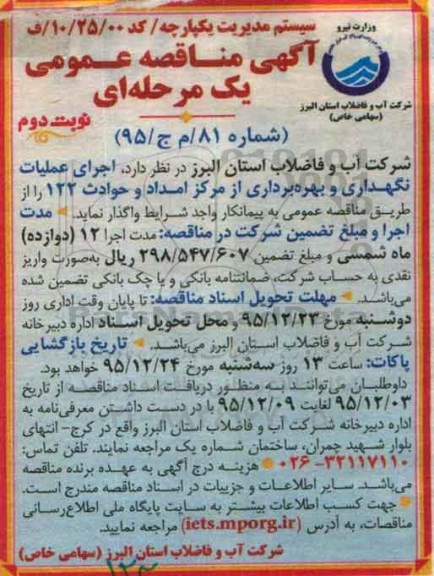 سیستم مدیریت یکپارچه/ کد ۱۰/۲۵/۰۰/ف
وزارت نیرو
شرکت آب و فاضلاب استان البرز
(سهامی خاص)
آگهی مناقصه عمومی
یک مرحله‌ای
نوبت دوم
(شماره ۸۱/م ج/۹۵)
شرکت آب و فاضلاب استان البرز در نظر دارد، اجرای عملیات
نگهداری و بهره‌برداری از مرکز امداد و حوادث ۱۲۲ را از
طریق مناقصه عمومی به پیمانکار واجد شرایط واگذار نماید. مدت
اجرا و مبلغ تضمین شرکت در مناقصه: مدت اجرا ۱۲ (دوازده)
ماه شمسی و مبلغ تضمین ۲۹۸/۵۴۷/۶۰۷ ریال به‌صورت واریز
نقدی به حساب شرکت، ضمانتنامه بانکی و یا چک بانکی تضمین شده
می‌باشد. مهلت تحویل اسناد مناقصه: تا پایان وقت اداری روز
دوشنبه مورخ ۹۵/۱۲/۲۳ و محل تحویل اسناد اداره دبیرخانه
شرکت آب و فاضلاب استان البرز می‌باشد. تاریخ بازگشایی
پاکات: ساعت ۱۳ روز سه‌شنبه مورخ ۹۵/۱۲/۲۴ خواهد بود.
داوطلبان می‌توانند به منظور دریافت اسناد مناقصه از تاریخ
۹۵/۱۲/۰۳ لغایت ۹۵/۱۲/۰۹ با در دست داشتن معرفی‌نامه به
اداره دبیرخانه شرکت آب و فاضلاب استان البرز واقع در کرج- انتهای
بلوار شهید چمران، ساختمان شماره یک مراجعه نمایند. تلفن تماس:
۰۲۶-۳۲۱۱۷۱۱۰ هزینه درج آگهی به عهده برنده مناقصه
می‌باشد. سایر اطلاعات و جزییات در اسناد مناقصه مندرج است.
جهت کسب اطلاعات بیشتر به سایت پایگاه ملی اطلاع‌رسانی
مناقصات، به آدرس (iets.mporg.ir) مراجعه نمایید.
شرکت آب و فاضلاب استان البرز (سهامی خاص)